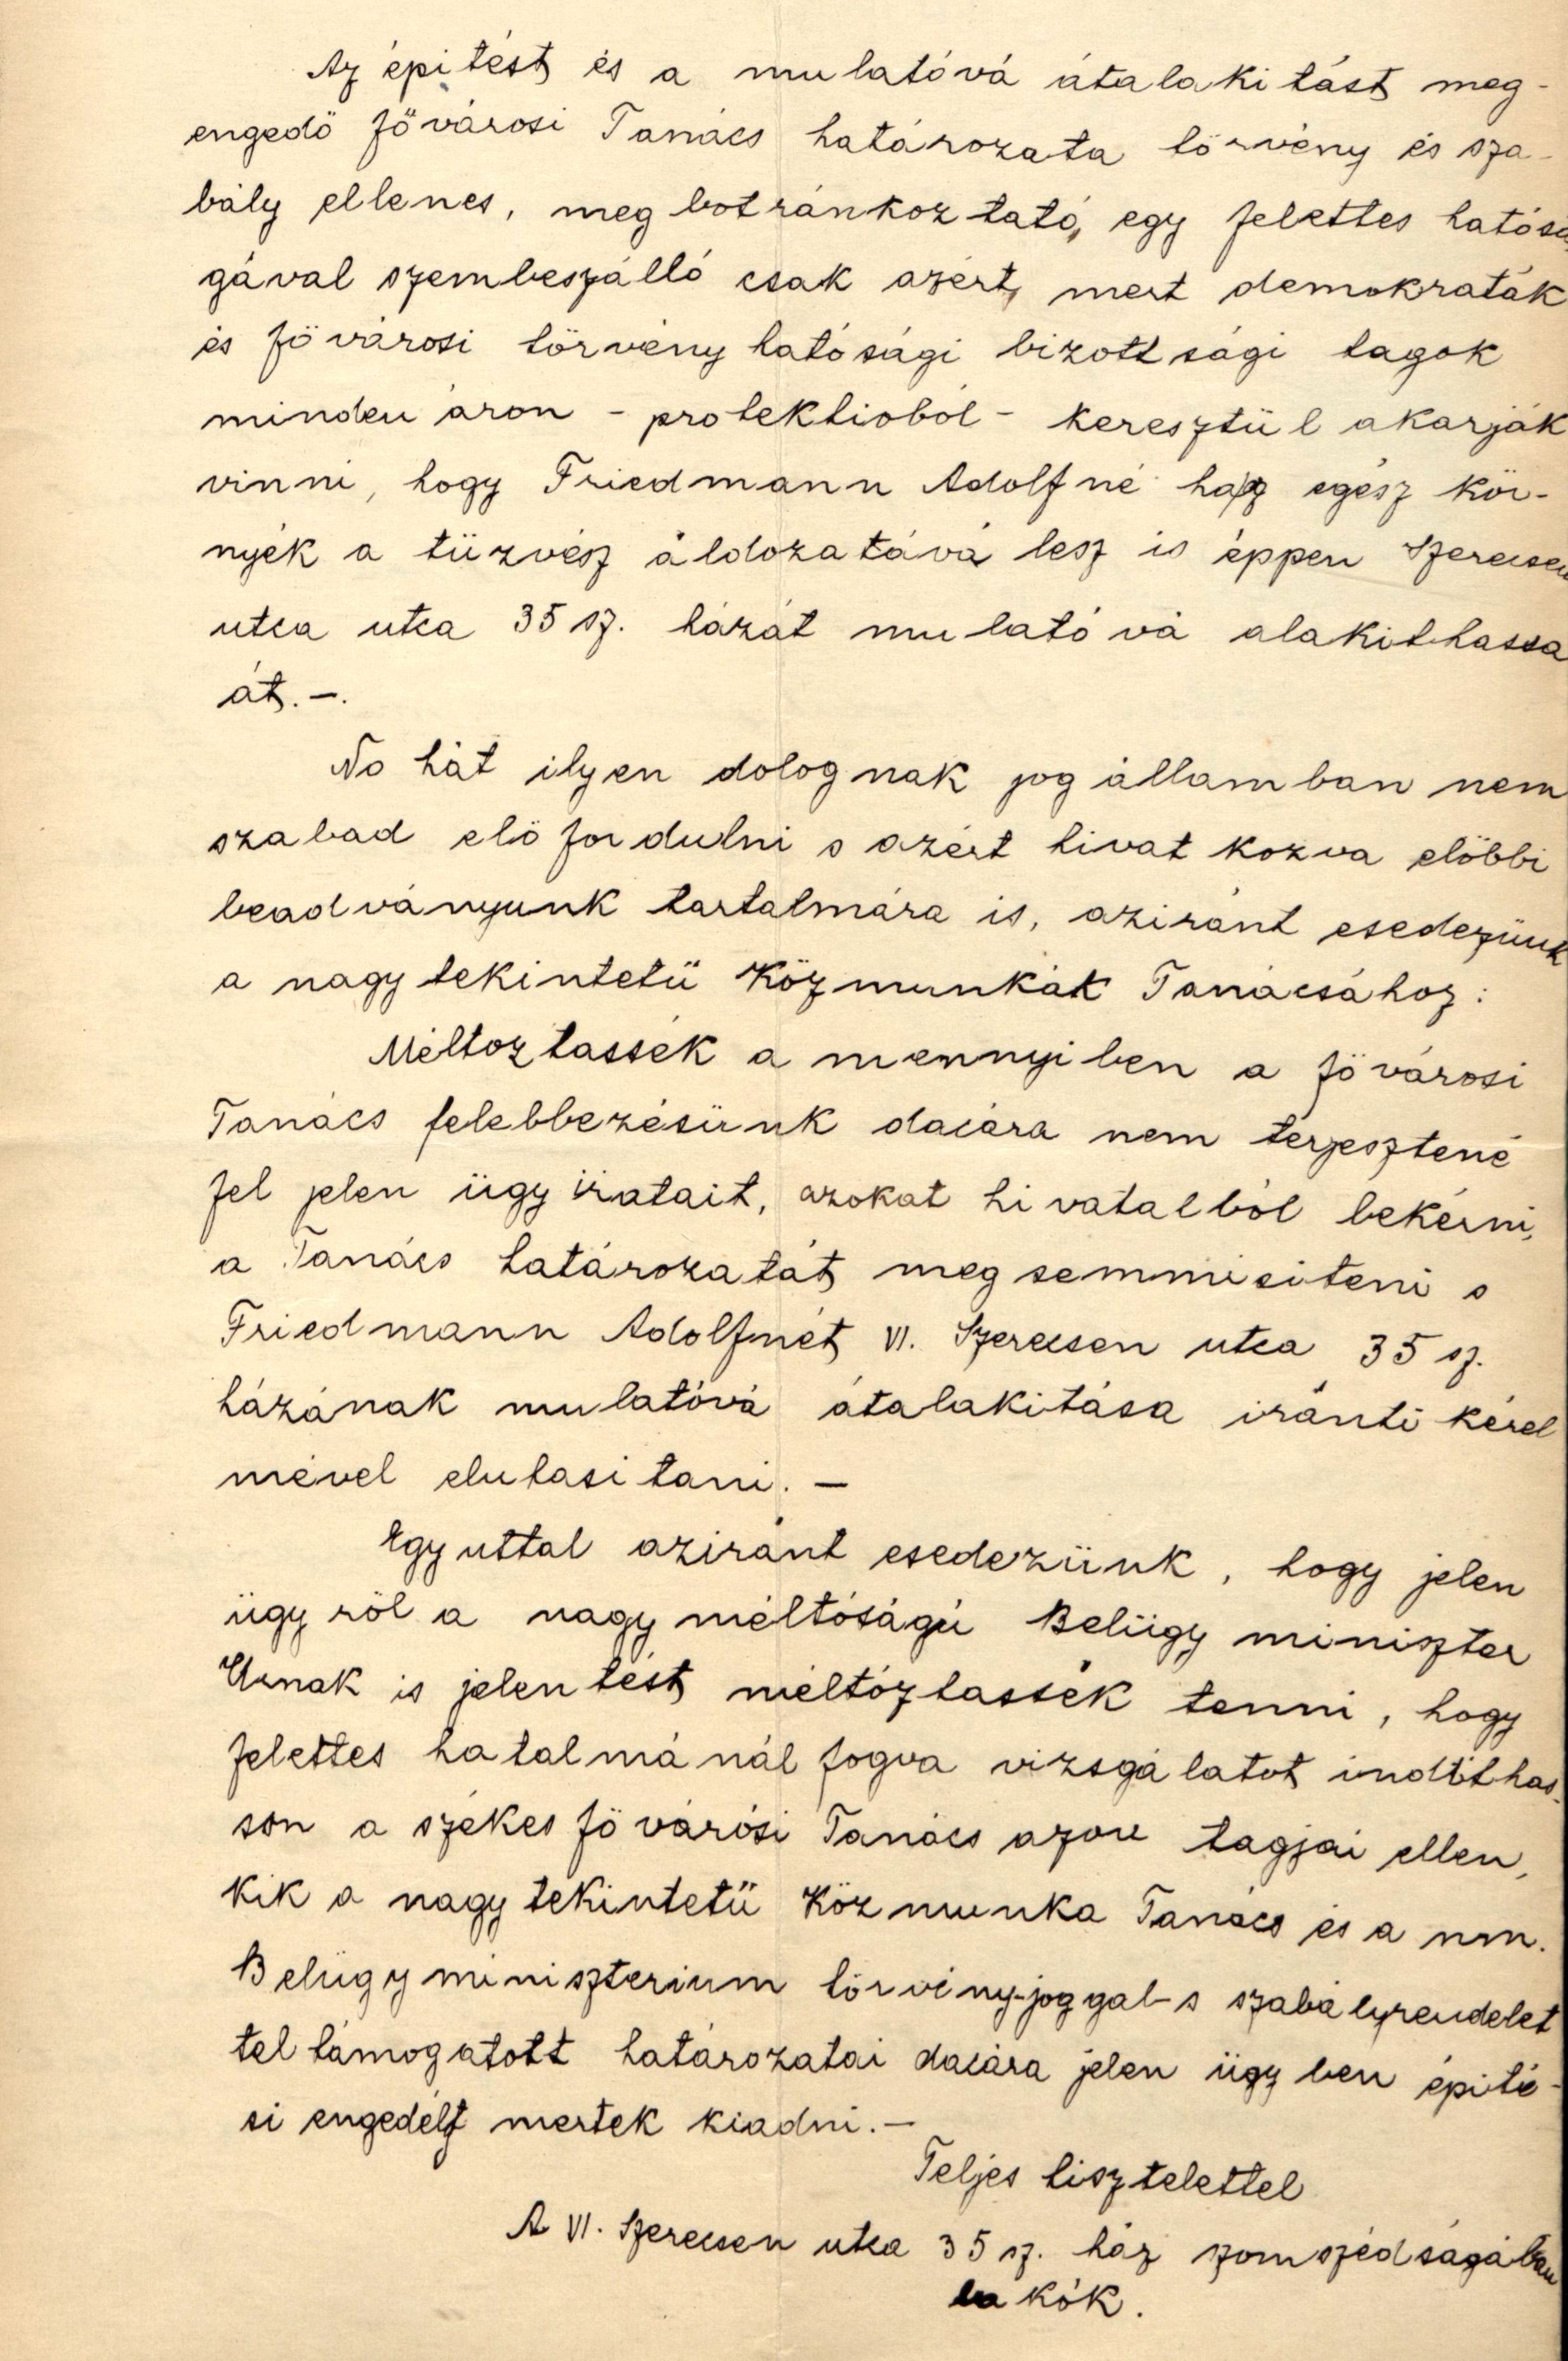 Az épitést és a mulatóvá átalakitást meg-
engedö fővárosi Tanács határozata törvény és sza-
bály ellenes, megbotránkoztató, egy felettes hatósá
gával szembeszálló csak azért, mert demokraták
és fövárosi törvényhatósági bizottsági tagok
minden áron - protektioból - keresztül akarják
vinni, hogy Friedmann Adolfné ha egész kör-
nyék a tüzvész áldozatává lesz is éppen Szerecsen
utca utca 35 sz. házát mulatóvá alakithassa
át. -.
No hát ilyen dolognak jogállamban nem
szabad elöfordulni s azért hivatkozva elöbbi
beadványunk tartalmára is, aziránt esedezünk
a nagytekintetü Közmunkák Tanácsához:
Méltoztassék a mennyiben a fövárosi
Tanács felebbezésünk dacára nem terjesztené
fel jelen ügy iratait, azokat hivatalból bekérni,
a Tanács határozatát megsemmisiteni s
Friedmann Adolfnét VI. Szerecsen utca 35 sz.
házának mulatóvá átalakitása iránti kérel
mével elutasitani. -
Egyuttal aziránt esedezünk, hogy jelen
ügyröl a nagyméltóságú Belügyminiszter
Urnak is jelentést méltóztassék tenni, hogy
felettes hatalmánál fogva vizsgálatot indithas-
son a székesfövárósi Tanács azon tagjai ellen,
kik a nagytekintetü Közmunka Tanács és a nm.
Belügyminiszterium törvény-joggal-s szabályrendelet
tel támogatott határozatai dacára jelen ügyben épité-
si engedélyt mertek kiadni. -
Teljes tisztelettel
A VI. Szerecsen utca 35 sz. ház szomszédságában
lakók.